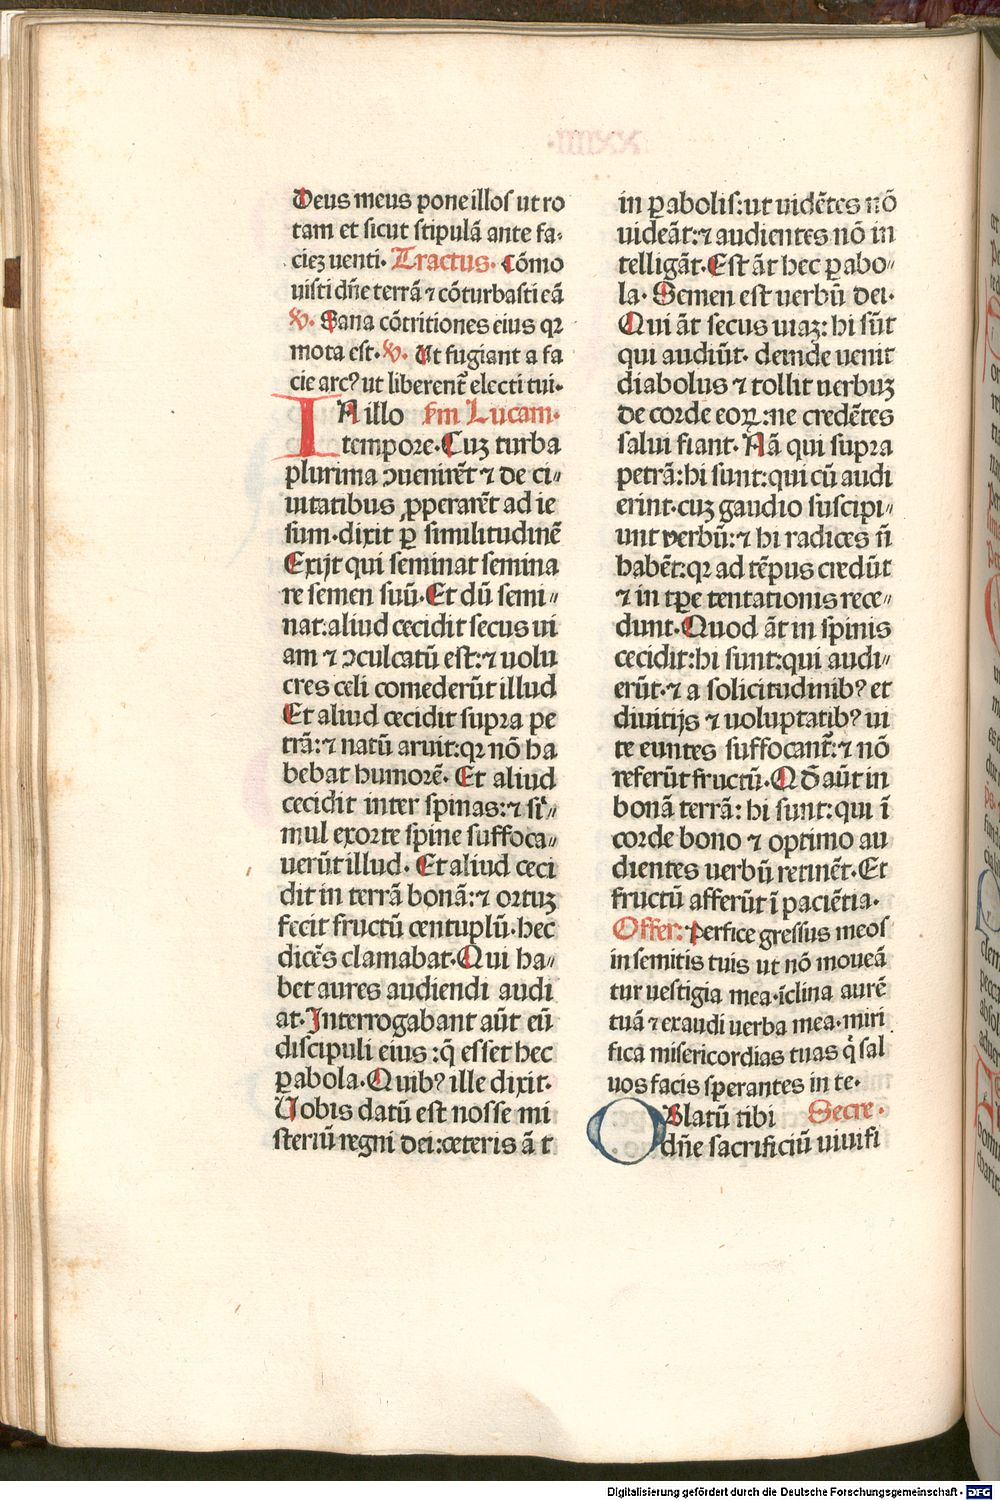 Deus meus pone illos ut ro
tam et sicut stipulã ante fa-
ciez uenti. Tractus. Cõmo
uisti dñe terrã ⁊ cõturbasti eã
V. Sana cõtritiones eius qꝛ
mota est. V. Ut fugiant a fa
cie arcꝰ ut liberent̃ electi tui.
IN illo ẜm Lucam.
tempore. Cuz turba
plurima ↄuenirẽt ⁊ de ci〃
uitatibus ꝓperarẽt ad ie
sum. dixit ꝑ similitudinẽ
Exijt qui seminat semina
re semen suũ. Et dũ semi〃
nat: aliud cecidit secus ui
am ⁊ ↄculcatũ est: ⁊ uolu
cres celi comederũt illud
Et aliud cecidit supra pe
trã: ⁊ natũ aruit: qꝛ nõ ha
bebat humorẽ. Et aliud
cecidit inter spinas: ⁊ si〃
mul exorte spine suffoca〃
uerũt illud. Et aliud ceci
dit in terrã bonã: ⁊ ortuz
fecit fructũ centuplũ. hec
dicẽs clamabat. Qui ha〃
bet aures audiendi audi
at. Interrogabant aũt eũ
discipuli eius: q̃ esset hec
ꝑabola. Quibꝰ ille dixit.
Uobis datũ est nosse mi
steriũ regni dei: ceteris ã t
in ꝑabolis: ut uidẽtes nõ
uideãt: ⁊ audientes nõ in
telligãt. Est ãt hec ꝑabo〃
la. Semen est uerbũ dei.
Qui ãt secus uiaz: hi sũt
qui audiũt. deinde uenit
diabolus ⁊ tollit uerbuz
de corde eoꝝ: ne credẽtes
salui fiant. Nã qui supra
petrã: hi sunt: qui cũ audi
erint. cuz gaudio suscipi〃
unt verbũ: ⁊ hi radices ñ
habẽt: qꝛ ad tẽpus credũt
⁊ in tꝑe tentationis rece〃
dunt. Quod ãt in spinis
cecidit: hi sunt: qui audi〃
erũt. ⁊ a solicitudinibꝰ et
diuitijs ⁊ uoluptatibꝰ ui
te euntes suffocant̃: ⁊ nõ
referũt fructũ. Qđ aũt in
bonã terrã: hi sunt: qui ĩ
corde bono ⁊ optimo au
dientes uerbũ retinẽt. Et
fructũ afferũt ĩ paciẽtia.
Offer: Perfice gressus meos
in semitis tuis ut nõ moueã
tur uestigia mea. ĩclina aurẽ
tuã ⁊ exaudi uerba mea. miri
fica misericordias tuas q̇ sal
uos facis sperantes in te.
OBlatũ tibi Secre.
dñe sacrificiũ uiuifi
Digitalisierung gefördert durch die Deutsche Forschungsgemeinschaft - DFG